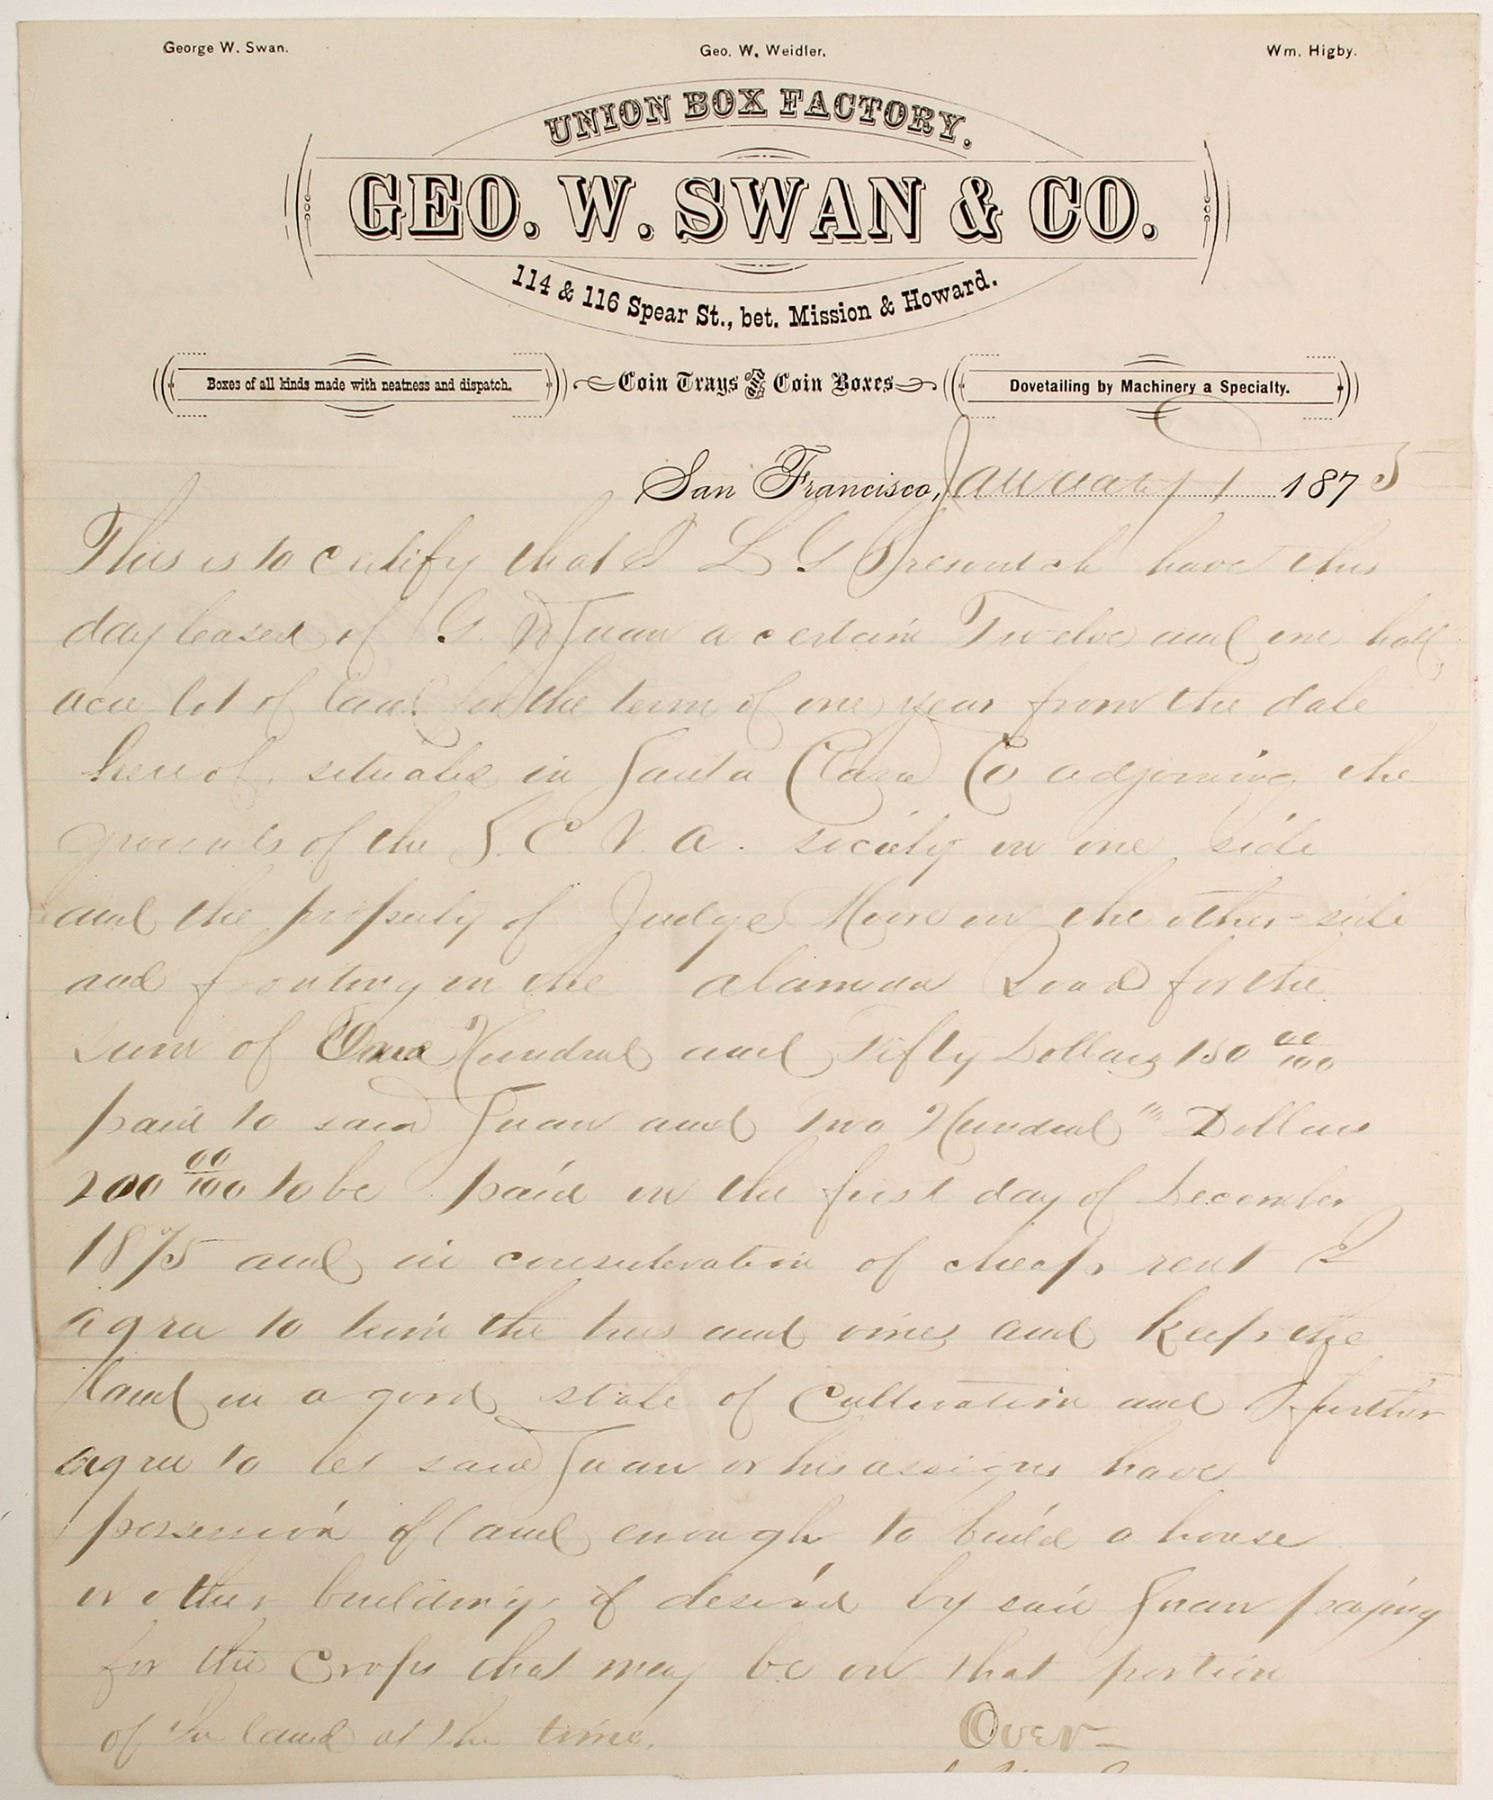 George W. Swan. Geo. W. Weidler. Wm. Higby.
UNION BOX FACTORY.
GEO. W. SWAN & CO.
114 & 116 Spear St., bet. Mission & Howard.
Boxes of all kinds made with neatness and dispatch. Coin Trays and Coin Boxes Dovetailing by Machinery a Specialty.
San Francisco, January 1 1875
This is to certify that I L G have this
day leased of G. W Swan a certain Twelve and one half
acre lot of land for the term of one year from the date
here of. situated in Santa Clara Co adjoining the
grounds of the S. C. V. A. society on one side
and the property of Judge on the other side
and fronting on the alameda Road for the
sum of One Hundred and Fifty Dollars 150 00/100
paid to said Swan and Two Hundred " Dollars
200 00/100 to be paid on the first day of December
1875 and in consideration of cheap rent I
agree to trim the trees and vines and keep the
land in a good state of Cultivation and I further
agree to let said Swan or his assigns have
possession of land enough to build a house
or other buildings if desired by said Swan paying
for the crops that may be on that portion
of the land at the time.
Over-